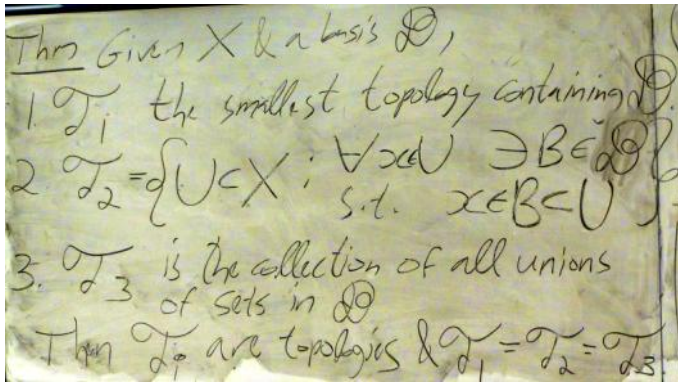 Thm Given X & a basis 𝓑,
1. 𝒯₁ the smallest topology containing 𝓑.
2. 𝒯₂ = {U ⊂ X ; ∀x∈U ∃B∈𝓑}
s.t. x∈B⊂U
3. 𝒯₃ is the collection of all unions
of sets in 𝓑
Then 𝒯ᵢ are topologies & 𝒯₁ = 𝒯₂ = 𝒯₃.